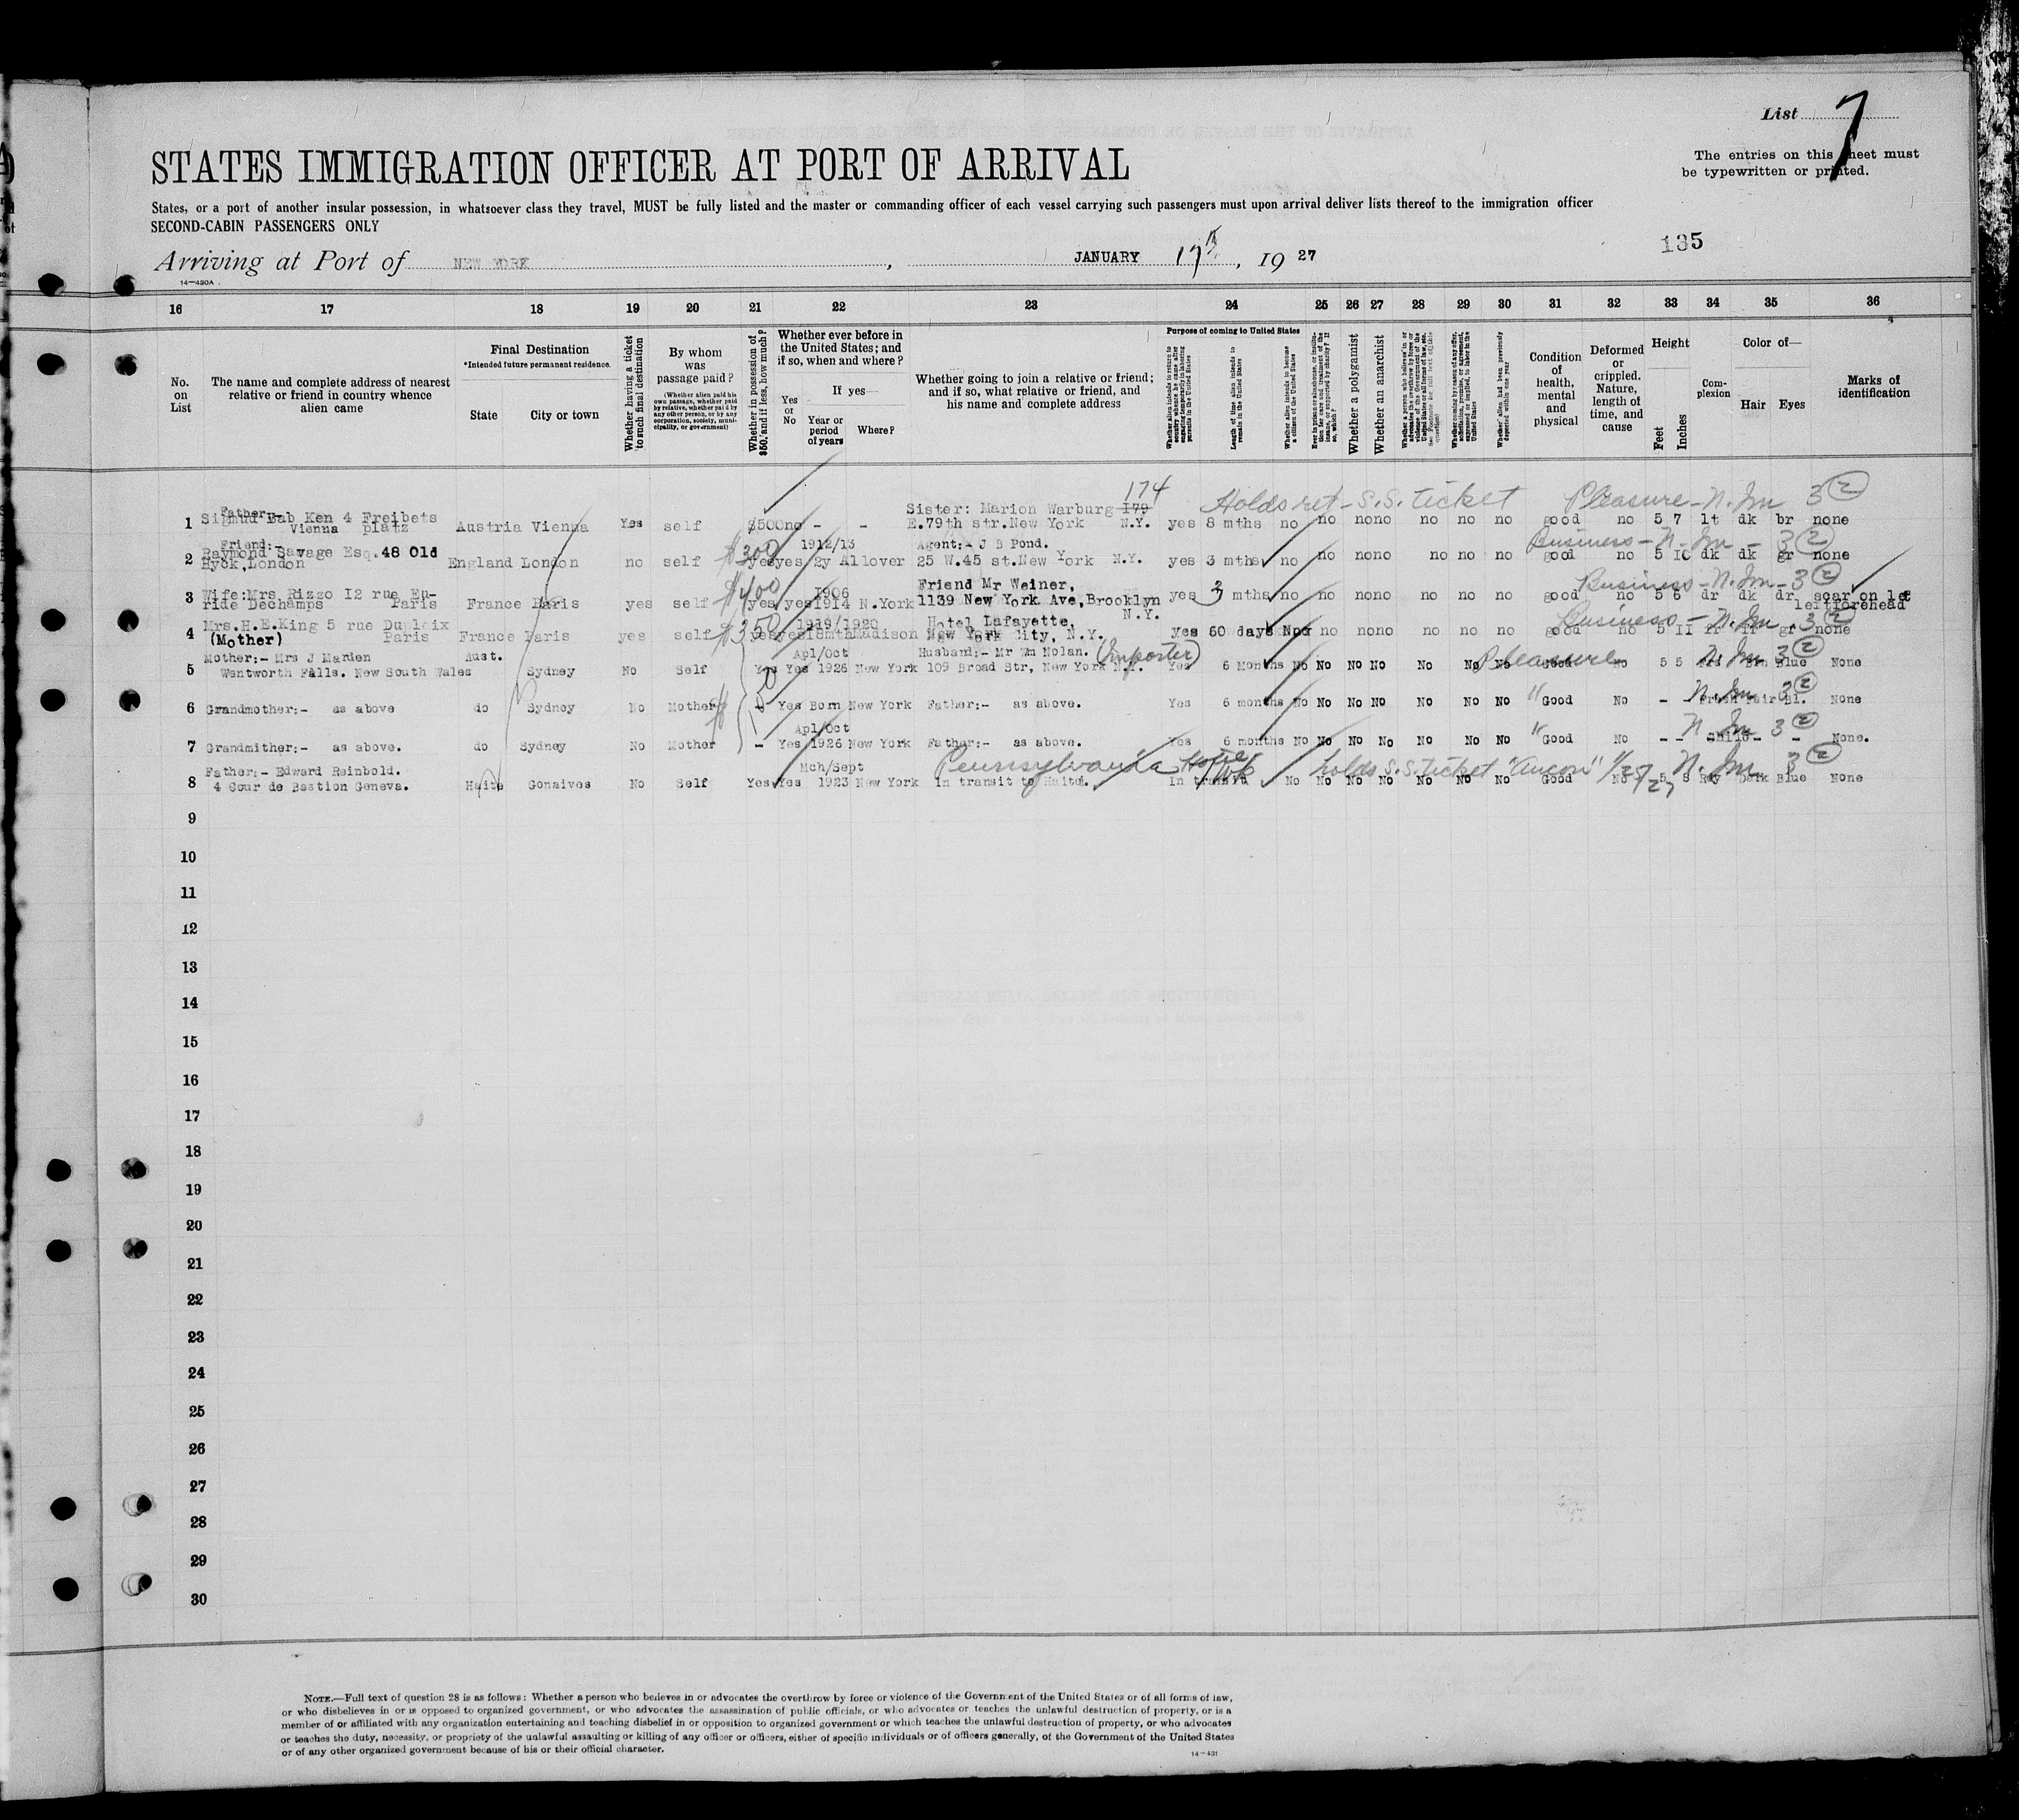 List 7
The entries on this sheet must
be typewritten or printed.
STATES IMMIGRATION OFFICER AT PORT OF ARRIVAL
States, or a port of another insular possession, in whatsoever class they travel, MUST be fully listed and the master or commanding officer of each vessel carrying such passengers must upon arrival deliver lists thereof to the immigration officer
SECOND-CABIN PASSENGERS ONLY
135
Arriving at Port of NEW YORK, JANUARY 17th, 19 27
14-430A
16 17 18 19 20 21 22 23 24 25 26 27 28 29 30 31 32 33 34 35 36
No. on List
The name and complete address of nearest relative or friend in country whence alien came
Final Destination
*Intended future permanent residence.
State City or town
Whether having a ticket to such final destination
By whom was passage paid?
(Whether alien paid his own passage, whether paid by relative, whether paid by any other person, or by any corporation, society, municipality, or government)
Whether in possession of $50, and if less, how much?
Whether ever before in the United States; and if so, when and where?
Yes or No
If yes—
Year or period of years Where?
Whether going to join a relative or friend; and if so, what relative or friend, and his name and complete address
Purpose of coming to United States
Whether alien intends to return to country whence he came after engaging temporarily in laboring pursuits in the United States
Length of time alien intends to remain in the United States
Whether alien intends to become a citizen of the United States
Whether a polygamist
Whether an anarchist
Whether alien had been previously deported within one year
Condition of health, mental and physical
Deformed or crippled. Nature, length of time, and cause
Height
Feet Inches
Complexion
Color of—
Hair Eyes
Marks of identification
174 Holds ret - S.S. ticket Pleasure - N. Im 3 (2)
Father: Sister: Marion Warburg 179
1 Freibets Vienna platz Austria Vienna Yes self $500 no - - E.79th str. New York N.Y. yes 8 mths no no no no no no no good no 5 7 lt dk br none
Friend: $300 1912/13 Agent:- J B Pond. Business - N. Im - 3 (2)
2 Raymond Savage Esq. 48 Old Hyck, London England London no self yes yes 2y Allover 25 W.45 st. New York N.Y. yes 3 mths no no no no no no no good no 5 10 dk dk gr none
$400 1906 Friend Mr Weiner, Business - N. Im - 3 (2)
3 Wife: Mrs. Rizzo 12 rue Eu-
ride Dechamps Paris France Paris yes self yes yes 1914 N.York 1139 New York Ave, Brooklyn N.Y. yes 3 mths no no no no no no no good no 5 6 dr dk dr scar on left
left forehead
Mrs. H.E. King 5 rue Dupleix $350 1919/1920 Hotel Lafayette, Business - N. Im. 3 (2)
4 (Mother) Paris France Paris yes self yes yes 18mth Madison New York City, N.Y. yes 60 days no no no no no no good no 5 11 gr none
Mother:- Mrs J Marden Aust. Apl/Oct Husband:- Mr Wm Nolan. (Importer) Pleasure N. Im 3 (2)
5 Wentworth Falls. New South Wales Sydney No Self Yes Yes 1926 New York 109 Broad Str, New York N.Y. Yes 6 Months No No No No No No No Good No 5 5 Brn Blue None
N. Im 3 (2)
6 Grandmother:- as above do Sydney No Mother - Yes Born New York Father:- as above. Yes 6 months No No No No No No No " Good No - - Fresh Fair Bl. None
Apl/Oct N. Im 3 (2)
7 Grandmither:- as above. do Sydney No Mother - Yes 1926 New York Father:- as above. Yes 6 months No No No No No No No " Good No - - Child - - None.
Father:- Edward Reinbold. Mch/Sept Pennsylvania Hotel 1 wk holds S.S. ticket "Ancon" 1/25/27 N. Im 3 (2)
8 4 Cour de Bastion Geneva. Haite Gonaives No Self Yes Yes 1923 New York In transit to Haiti. In transit No No No No No No No Good No 5 8 Dark Blue None
9
10
11
12
13
14
15
16
17
18
19
20
21
22
23
24
25
26
27
28
29
30
NOTE.—Full text of question 28 is as follows: Whether a person who believes in or advocates the overthrow by force or violence of the Government of the United States or of all forms of law,
or who disbelieves in or is opposed to organized government, or who advocates the assassination of public officials, or who advocates or teaches the unlawful destruction of property, or is a
member of or affiliated with any organization entertaining and teaching disbelief in or opposition to organized government or which teaches the unlawful destruction of property, or who advocates
or teaches the duty, necessity, or propriety of the unlawful assaulting or killing of any officer or officers, either of specific individuals or of officers generally, of the Government of the United States
or of any other organized government because of his or their official character.
14-431